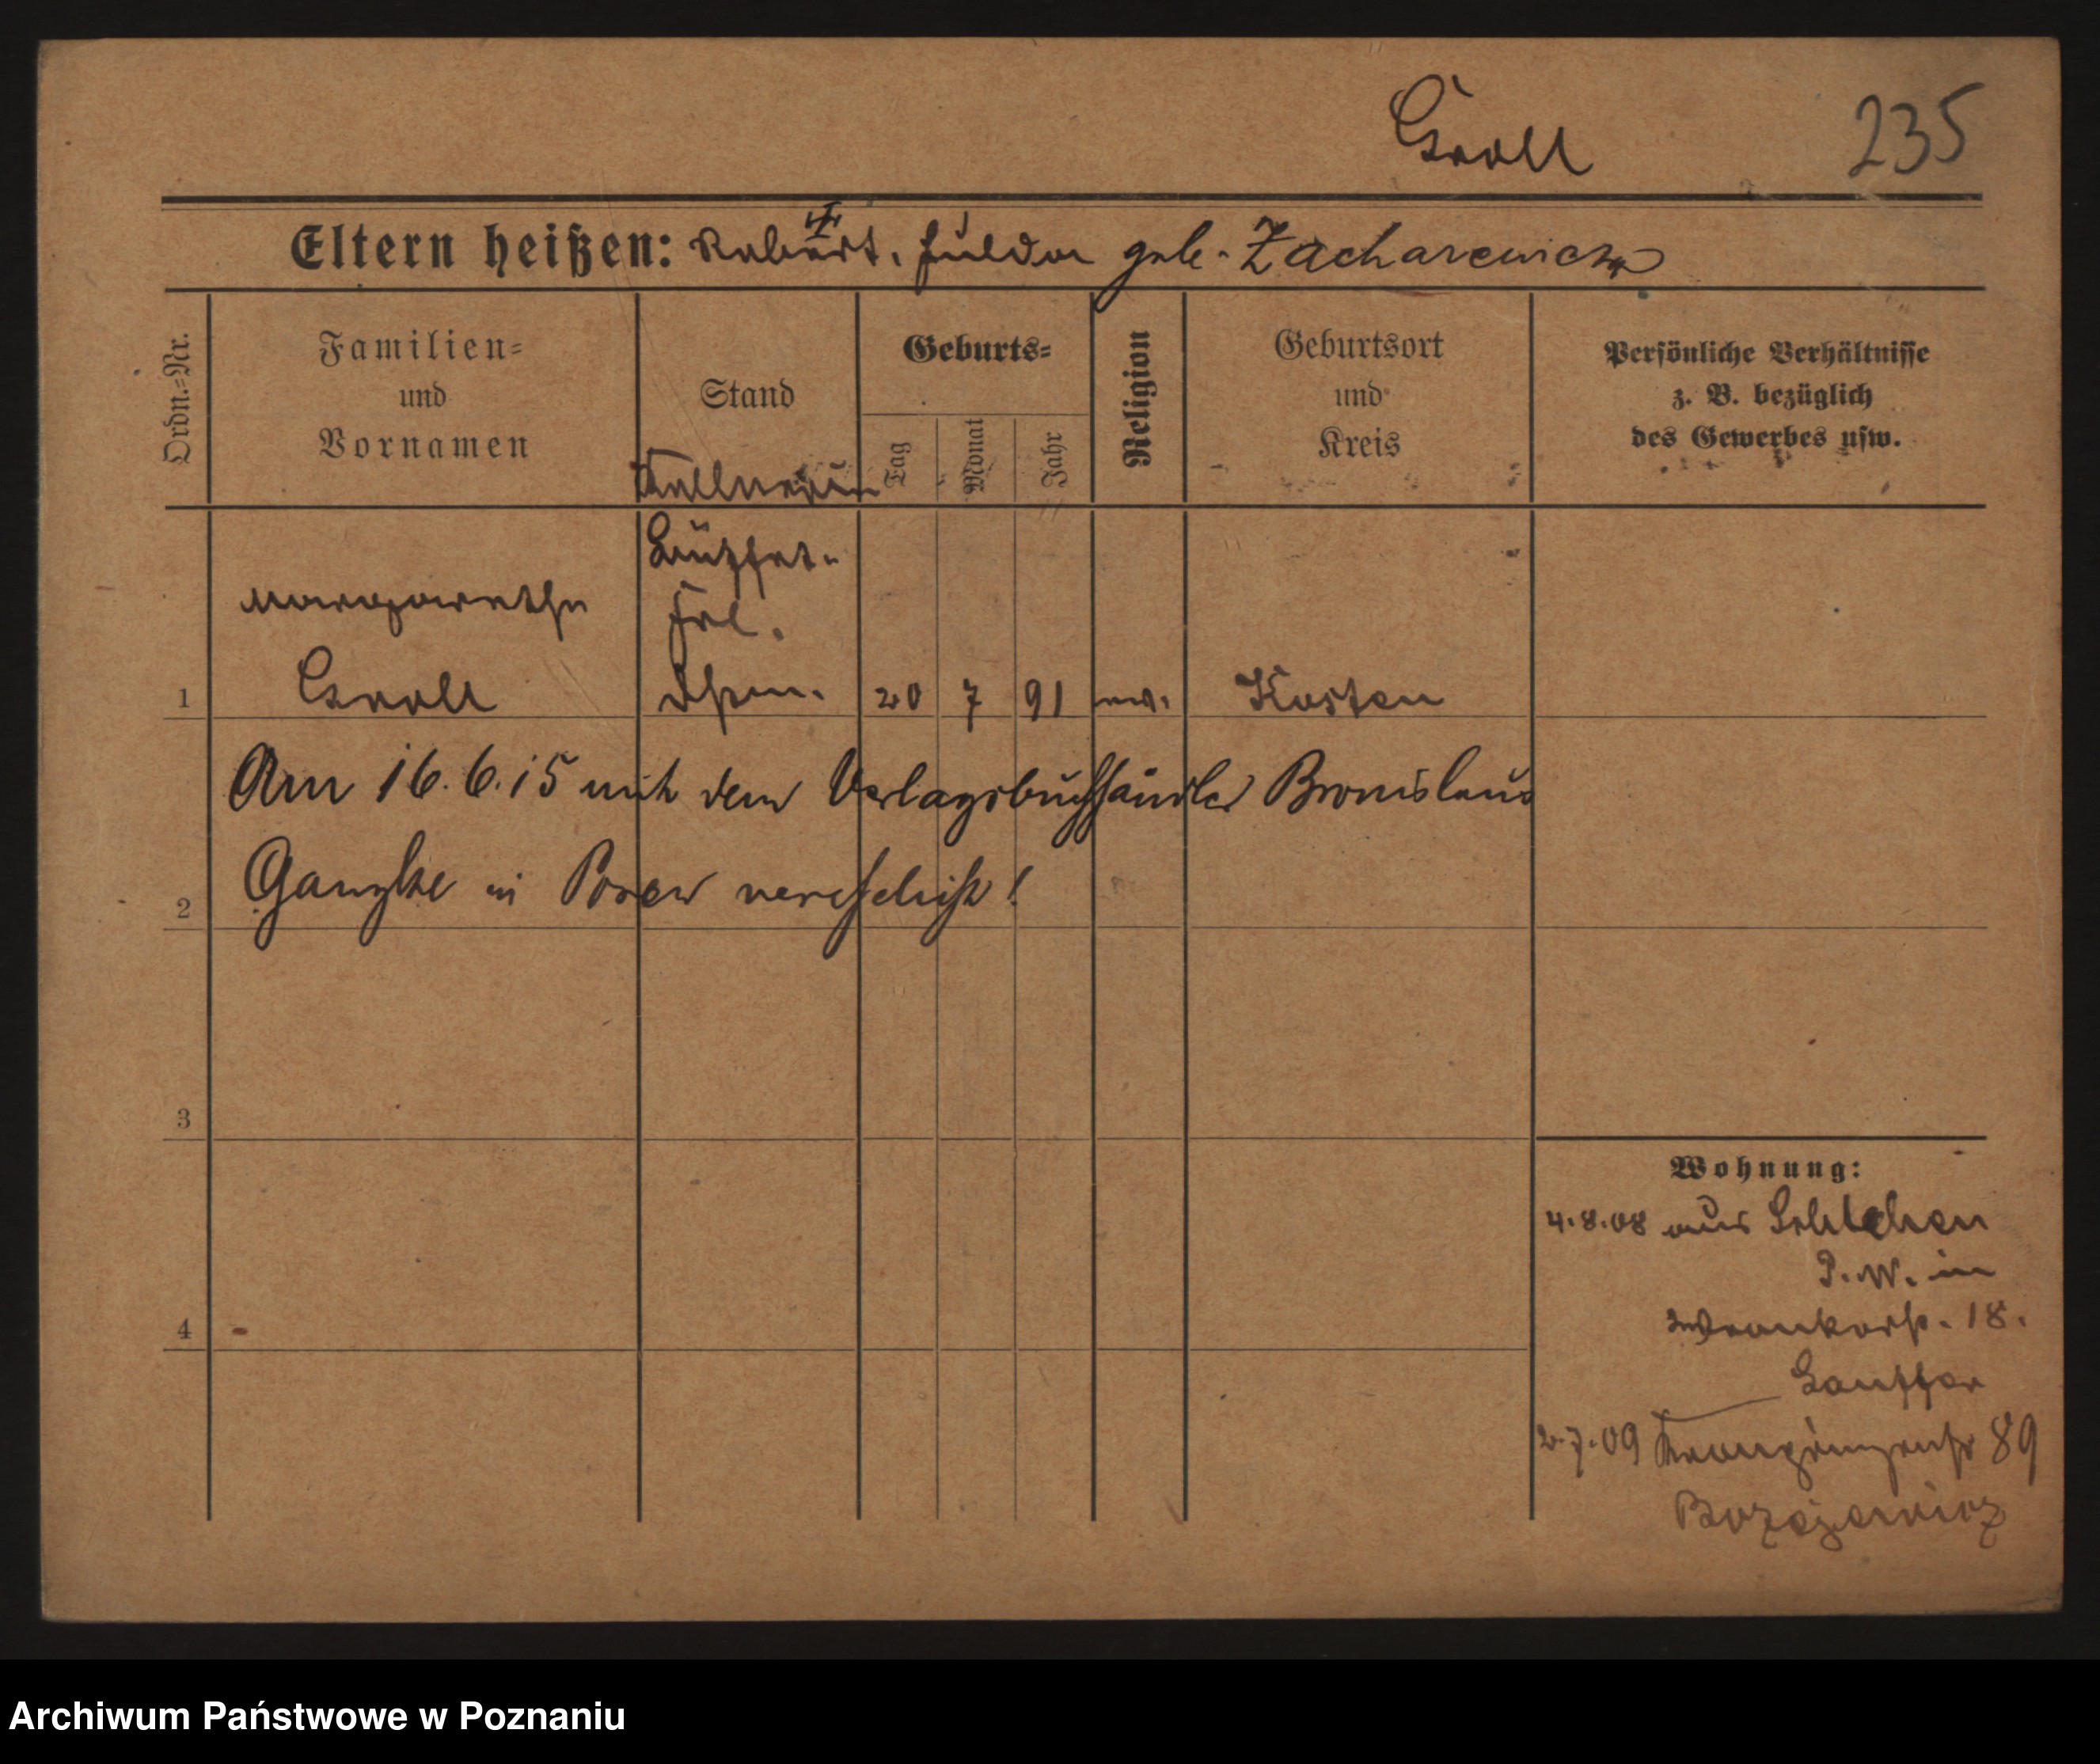 Groll 235
Eltern heißen: Robert, Hulda geb. Zacharewicz
Ordn.-Nr.
Familien-
und
Vornamen
Stand
Geburts-
Tag
Monat
Jahr
Religion
Geburtsort
und
Kreis
Persönliche Verhältnisse
z. B. bezüglich
des Gewerbes usw.
Kellnerin
Büffet-
Frl.
Margarethe
1 Groll 20 7 91 ev. Kosten
Am 16.6.15 mit dem Verlagsbuchhändler Bronislaus
2 in Posen verehelicht!
3
Wohnung:
4.8.08 aus
P. W. in
4 18.
2.7.09 Kronprinzenstr 89
Archiwum Państwowe w Poznaniu